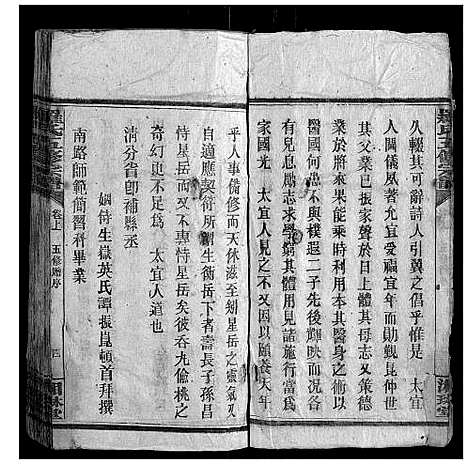 羅氏五修宗譜
久輟其可辭詩人引翼之倡乎惟是 太宜
人閫儀夙著允宜愛福宜年而勛觀昆仲世
其父業已振家聲於日上體其母志又策德
業於將來果能乘時利用本其醫身之術以
醫國何患不與樸邍二子先後輝映而況各
有兒息勵志求學窮其體用見諸施行富我
家國光 太宜人日以頤養天年
乎人事備修而天休滋至紛星岳之靈氣又
自適應契衍所謂生衡岳下者壽長子孫昌
恃星岳而又不專恃星岳矣彼吞九偷桃之
奇幻更不足爲 太宜人道也
清分省卽補縣丞
姻侍生嶽英氏譚振崑頓首拜撰
南路師範簡習科畢業
卷上
五修贈序